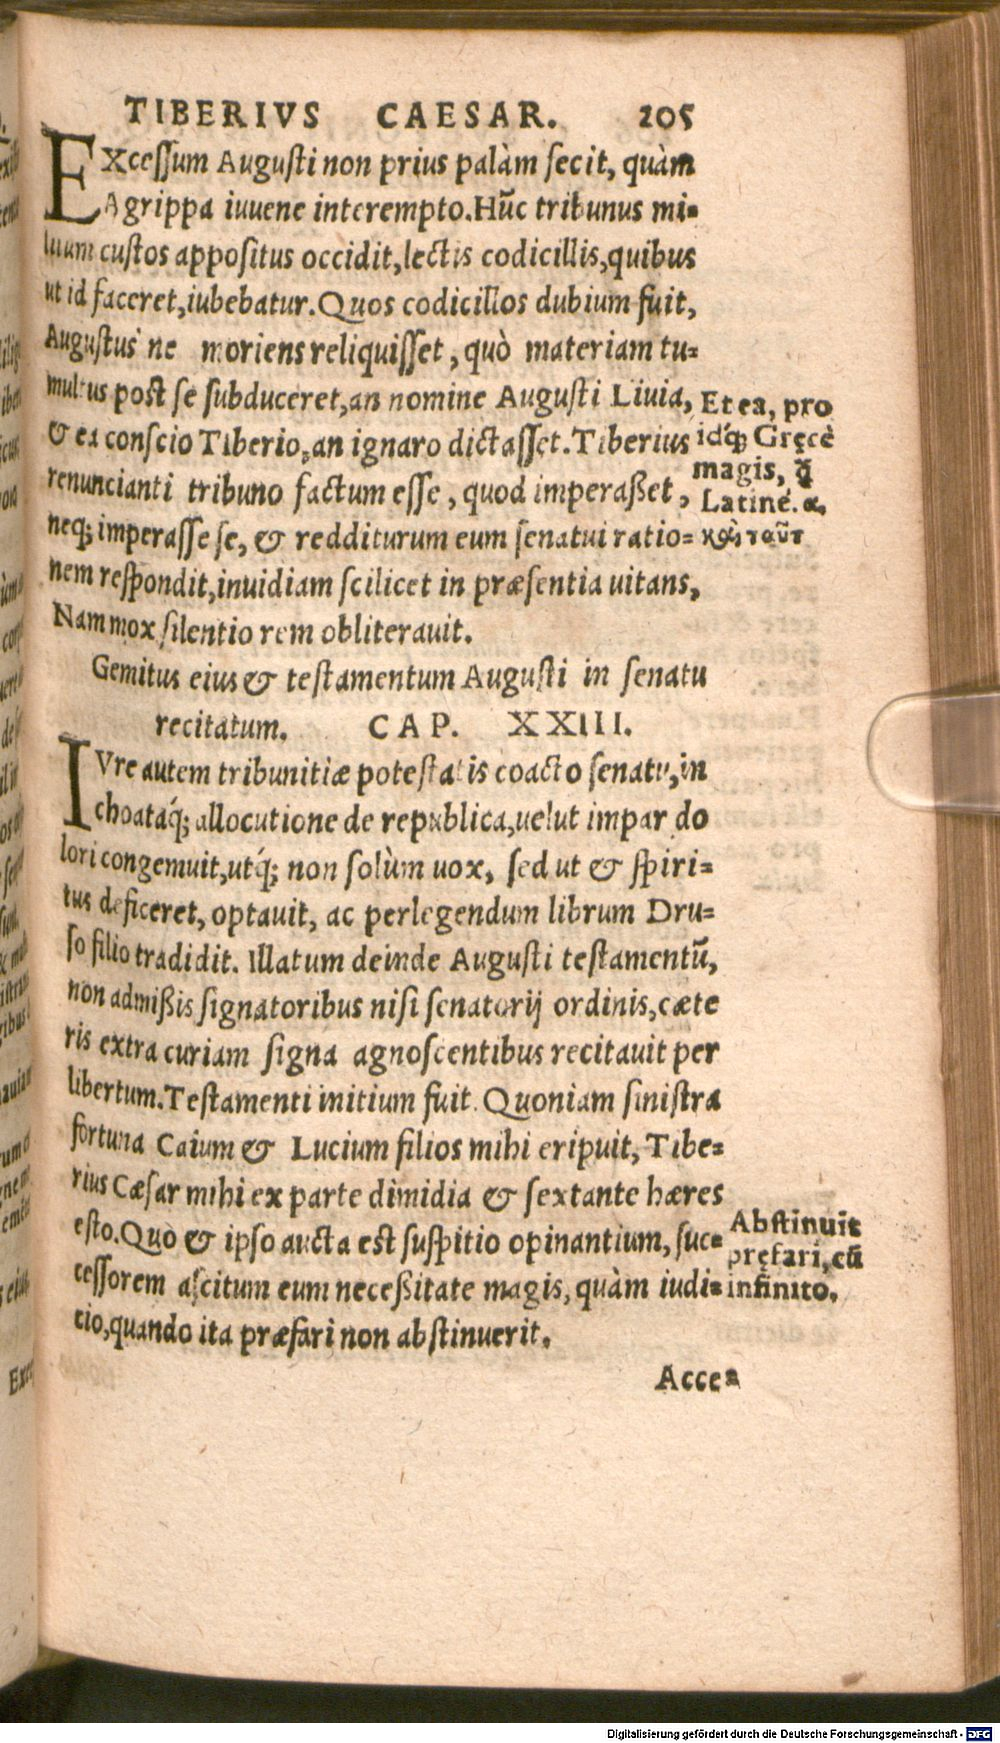 TIBERIVS CAESAR. 205
EXcessum Augusti non prius palàm fecit, quàm
Agrippa iuuene interempto. Hūc tribunus mi-
litum custos appositus occidit, lectis codicillis, quibus
ut id faceret, iubebatur. Quos codicillos dubium fuit,
Augustus ne moriens reliquisset, quò materiam tu-
multus post se subduceret, an nomine Augusti Liuia,
& ea conscio Tiberio, an ignaro dictasset. Tiberius
renuncianti tribuno factum esse, quod imperaßet,
neq; imperasse se, & redditurum eum senatui ratio-
nem respondit, inuidiam scilicet in præsentia uitans,
Nam mox silentio rem obliterauit.
Et ea, pro
idq́; Gręcè
magis, q̈̃
Latinè.
Gemitus eius & testamentum Augusti in senatu
recitatum. CAP. XXIII.
IVre autem tribunitiæ potestatis coacto senatu, in
choatáq; allocutione de republica, uelut impar do
lori congemuit, utq́; non solùm uox, sed ut & spiri-
tus deficeret, optauit, ac perlegendum librum Dru-
so filio tradidit. Illatum deinde Augusti testamentũ,
non admißis signatoribus nisi senatorij ordinis, cæte
ris extra curiam signa agnoscentibus recitauit per
libertum. Testamenti initium fuit. Quoniam sinistra
fortuna Caium & Lucium filios mihi eripuit, Tibe-
rius Cæsar mihi ex parte dimidia & sextante hæres
esto. Quò & ipso aucta est suspitio opinantium, suc-
cessorem ascitum eum neceßitate magis, quàm iudi-
cio, quando ita præfari non abstinuerit.
Abstinuit
pręfari, cũ
infinito.
Acce-
Digitalisierung gefördert durch die Deutsche Forschungsgemeinschaft - DFG